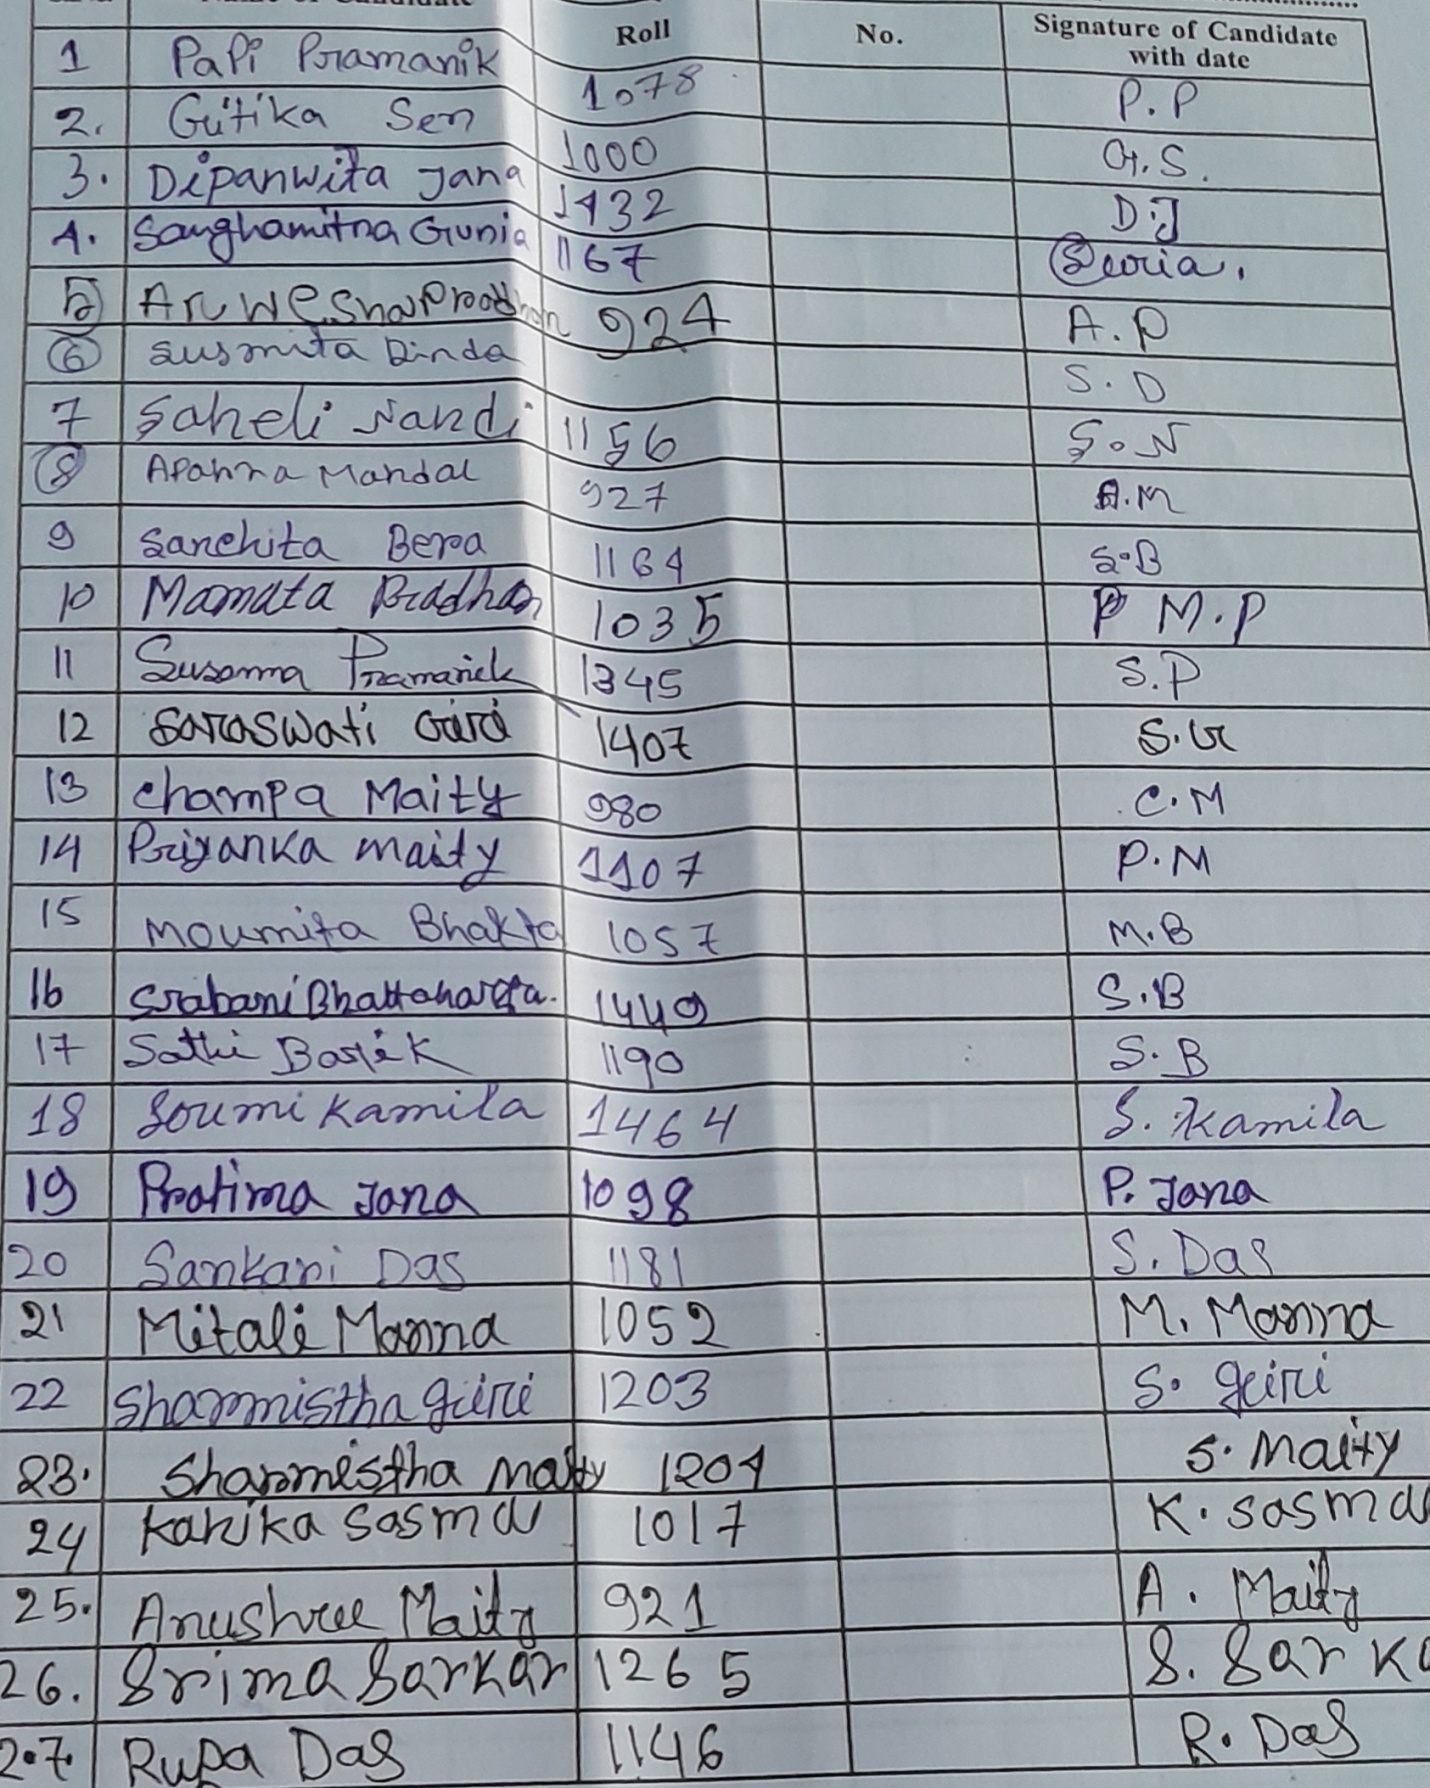 Roll No. Signature of Candidate
with date
1 Papi Pramanik 1078 P.P
2. Gitika Sen 1000 G.S.
3. Dipanwita Jana 1432 D.J
4. Sanghamitra Gunia 1167
5 Anwesha Pradhan 924 A.P
6 Susmita Dinda S.D
7 Saheli Nandi 1156 S.N
8 Aparna Mandal 927 A.M
9 Sanchita Bera 1164 S.B
10 Mamata Pradhan 1035 P M.P
11 Susanna Pramanick 1345 S.P
12 Saraswati Giri 1407 S.G
13 Champa Maity 980 C.M
14 Priyanka Maity 1107 P.M
15 Moumita Bhakta 1057 M.B
16 Srabani Bhattaharya. 1449 S.B
17 Sathi Barik 1190 S.B
18 Soumi Kamila 1464 S. Kamila
19 Pratima Jana 1098 P. Jana
20 Sankari Das 1181 S. Das
21 Mitali Manna 1052 M. Manna
22 Sharmistha Giri 1203 S. Giri
23. Sharmistha Maity 1204 S. Maity
24 Kanika Sasmal 1017 K. Sasmal
25. Anushree Maity 921 A. Maity
26. Srima Sarkar 1265 S. Sarka
27. Rupa Das 1146 R. Das